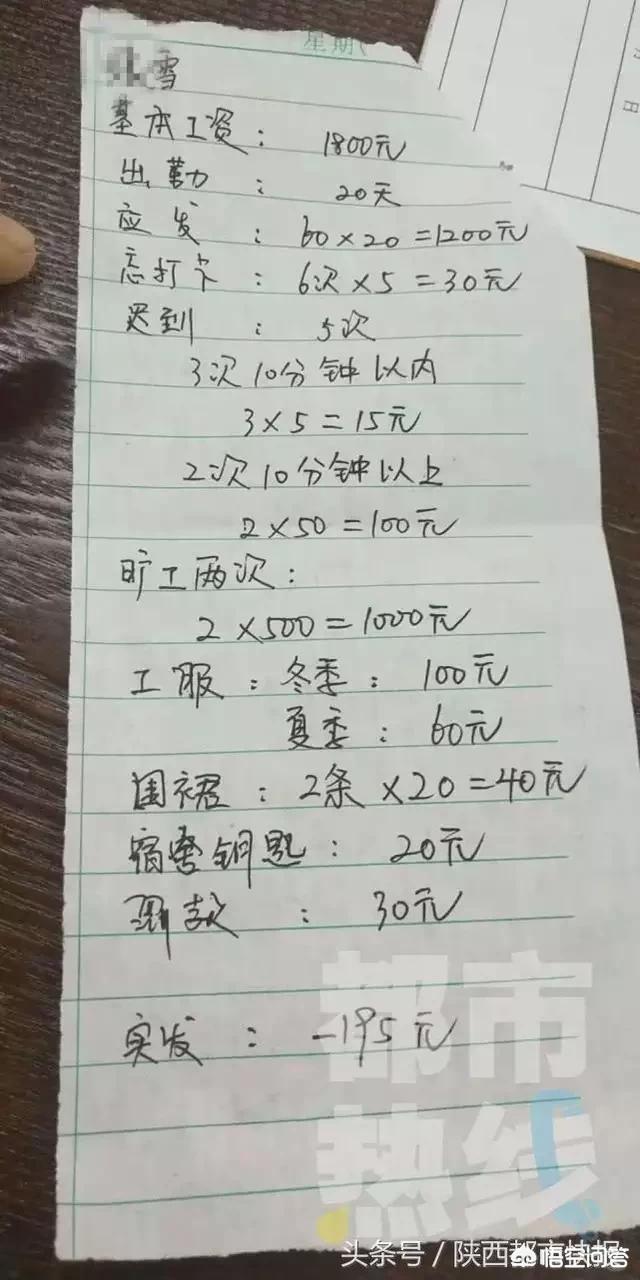 星期(
雪
基本工资： 1800元
出勤： 20天
应发： 60×20=1200元
忘打卡： 6次×5=30元
迟到： 5次
3次10分钟以内
3×5=15元
2次10分钟以上
2×50=100元
旷工两次：
2×500=1000元
工服：冬季： 100元
夏季： 60元
围裙：2条×20=40元
宿舍钥匙： 20元
罚款： 30元
实发： -195元
都市
热线
头条号／陕西都市快报
悟空问答
日